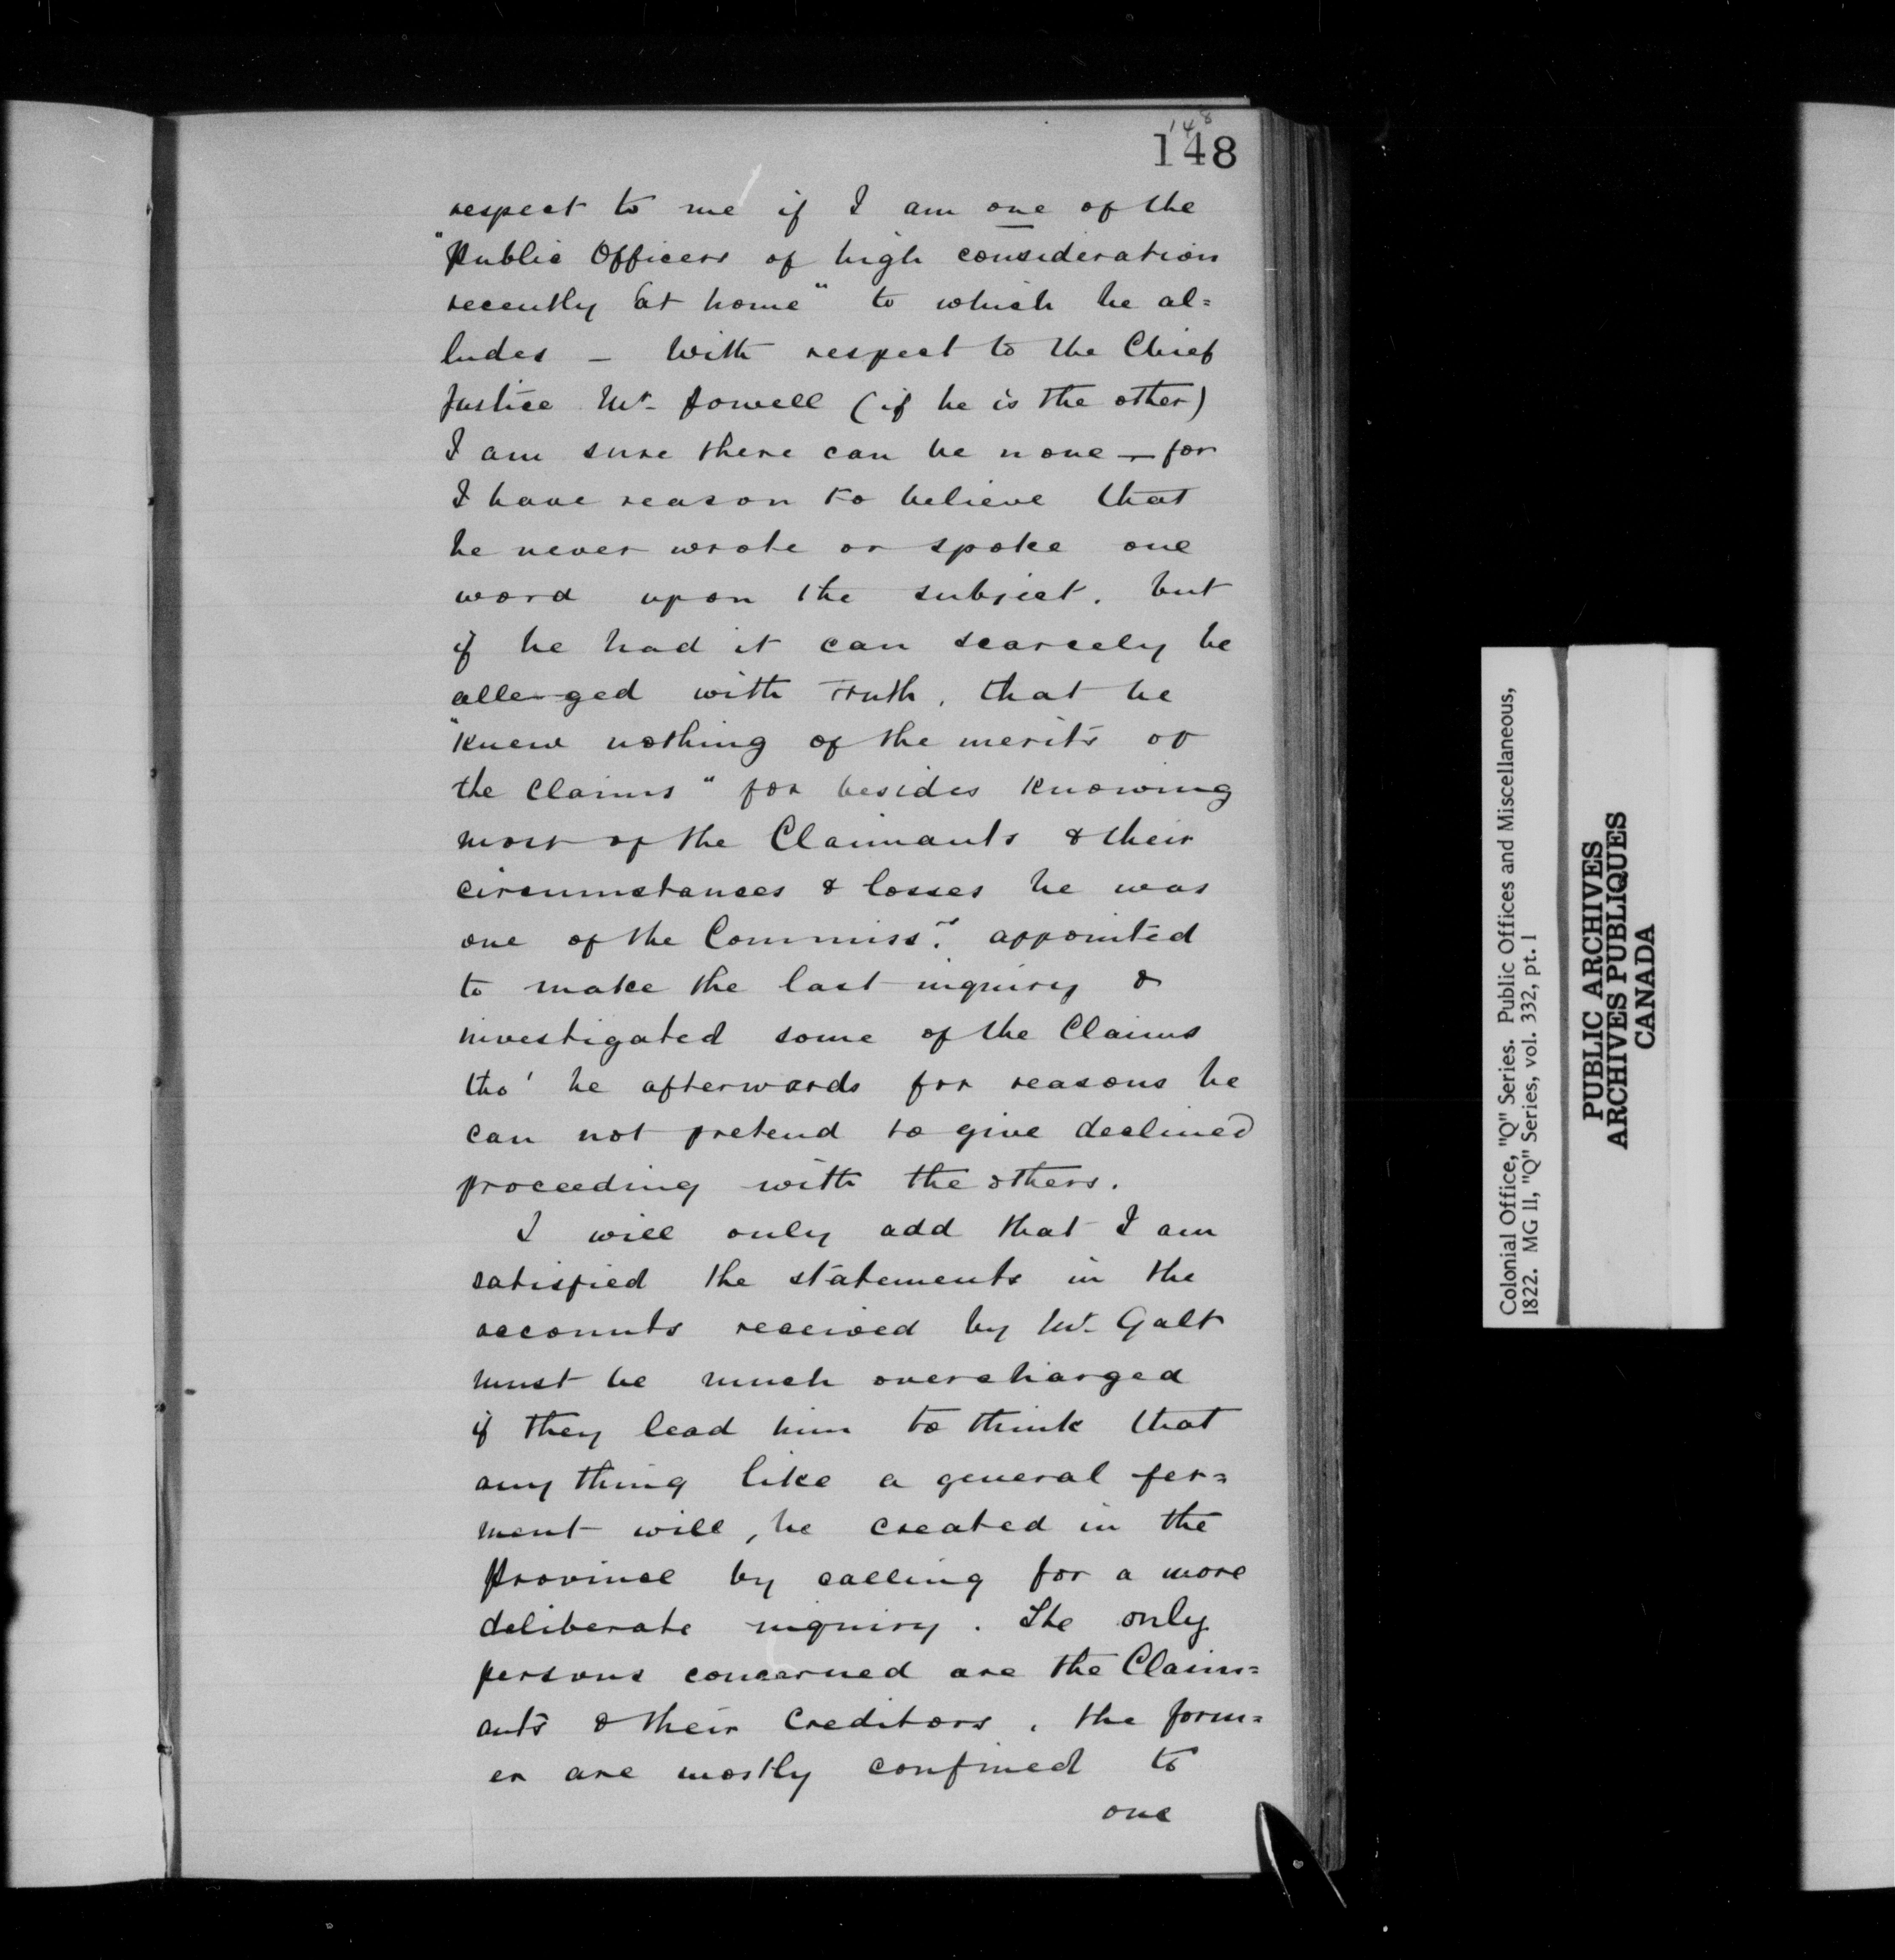 148
148
respect to me if I am one of the
"Public Officers of high consideration
recently at home" to which he al=
ludes — With respect to the Chief
Justice Mr. Powell (if he is the other)
I am sure there can be none — for
I have reason to believe that
he never wrote or spoke one
word upon the subject. but
if he had it can scarcely be
alledged with truth, that he
"knew nothing of the merits of
the claims" for besides knowing
most of the Claimants & their
circumstances & losses he was
one of the Commissrs. appointed
to make the last inquiry &
investigated some of the Claims
tho' he afterwards for reasons he
can not pretend to give declined
proceeding with the others.
I will only add that I am
satisfied the statements in the
accounts received by Mr. Galt
must be much overcharged
if they lead him to think that
any thing like a general fer=
ment will, be created in the
Province by calling for a more
deliberate inquiry. The only
persons concerned are the Claim=
ants & their Creditors, the form=
er are mostly confined to
one
Colonial Office, "Q" Series. Public Offices and Miscellaneous,
1822. MG 11, "Q" Series, vol. 332, pt. 1
PUBLIC ARCHIVES
ARCHIVES PUBLIQUES
CANADA